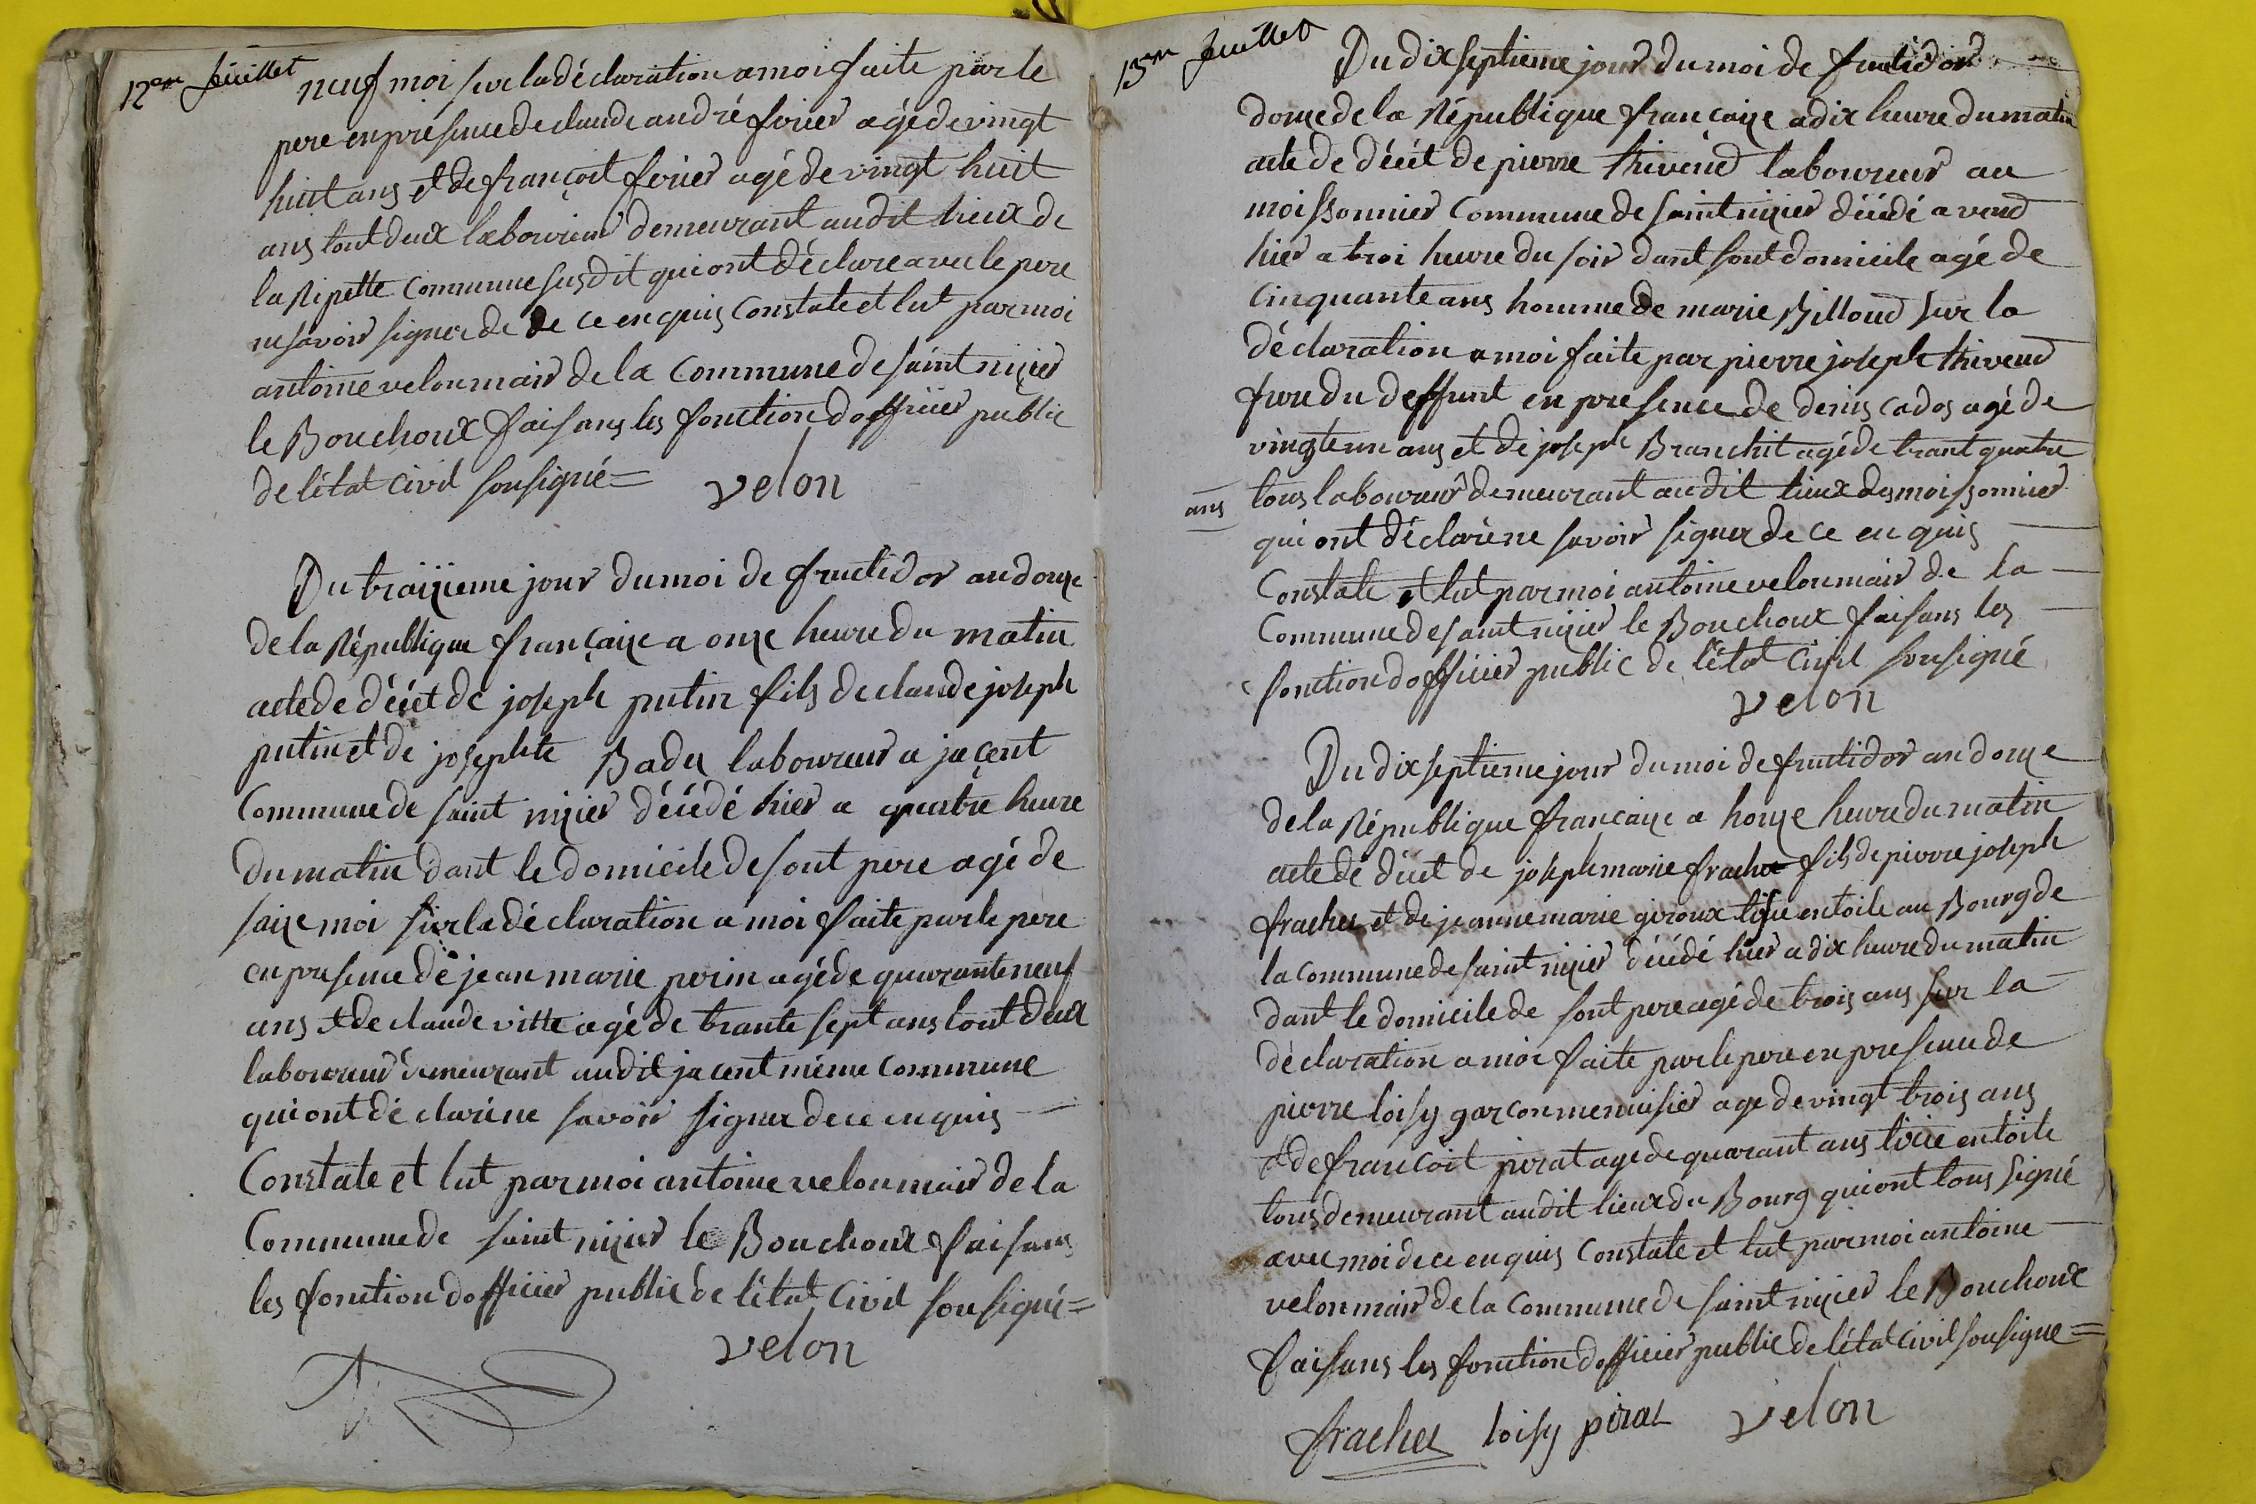 12em feüillet
neuf moi sur la déclaration a moi faite par le
pere en présence de claude andré forier agé de vingt
huit ans et de françoit forier agé de vingt huit
ans tout deux laboureur demeurant audit lieux de
la Ripette commune susdit qui ont déclare avec le pere
ne savoir signer de de ce enquis constate et lut par moi
antoine velon mair de la commune de saint nizier
le Bouchoux faisans les fonction dofficier public
de létat civil sousigné =
velon
Du traizieme jour du moi de fructidor an douze
de la République françaize a onze heure du matin
acte de décét de joseph putin fils de claude joseph
putin et de josephte Badez laboureur a jacent
commune de saint nizier décédé hier a quatre heure
du matin dant le domicile de sont pere agé de
saize moi sur la déclaration a moi faite par le pere
en presence de jean marie perin agé de quarante neuf
ans et de claude vitte agé de trante sept ans tout deux
laboureur demeurant audit jacent même commune
qui ont déclaré ne savoir signer de ce enquis
Constate et lut par moi antoine velon mair de la
Commune de saint nizier le Bouchoux faisans
les fonction dofficier public de létat civil sousigné =
velon
13em feuillet
Du dix septieme jour du moi de fructidor
douze de la République françaize a dix heure du matin
acte de décét de pierre thivend laboureur au
moissonnier commune de saint nizier décédé avend
hier a troi heure du soir dant sont domicile agé de
cinquante ans homme de marie Billoud sur la
déclaration a moi faite par pierre joseph thivend
frere du deffunt en presence de denis cados agé de
vingt un ans et de joseph Branchit agé de trant quatre
ans
tous laboureur demeurant audit lieux des moissonnier
qui ont déclaré ne savoir signer de ce enquis
Constate et lut par moi antoine velon mair de la
Commune de saint nizier le Bouchoux faisans les
fonction dofficier public de létat civil sousigné
velon
Du dix septieme jour du moi de fructidor an douze
de la République francaize a honze heure du matin
acte de décét de joseph marie frachet fils de pierre joseph
frachet et de jeanne marie giroux tisie en toile au Bourg de
la commune de saint nizier décédé hier a dix heure du matin
dant le domicile de sont pere agé de trois ans sur la
déclaration a moi faite par le pere en presence de
pierre loisy garcon menuisier age de vingt trois ans
et de francoit pirat age de quarant ans tixie en toile
tous demeurant audit lieux du Bourg qui ont tous signé
avec moi de ce enquis constate et lut par moi antoine
velon mair de la commune de saint nizier le Bouchoux
faisans les fonction dofficier public de létat civil sousigne =
frachet loisy pirat velon